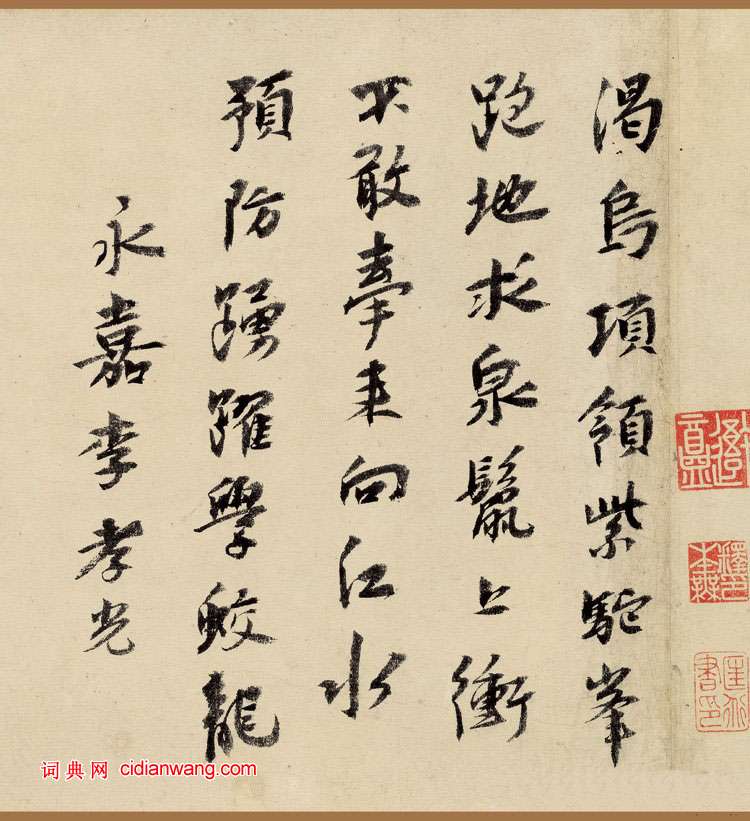 渴烏項領紫駝峯
跑地求泉鬣上衝
不敢牽来向江水
預防踴躍學蛟龍
永嘉李孝光
词典网 cidianwang.com